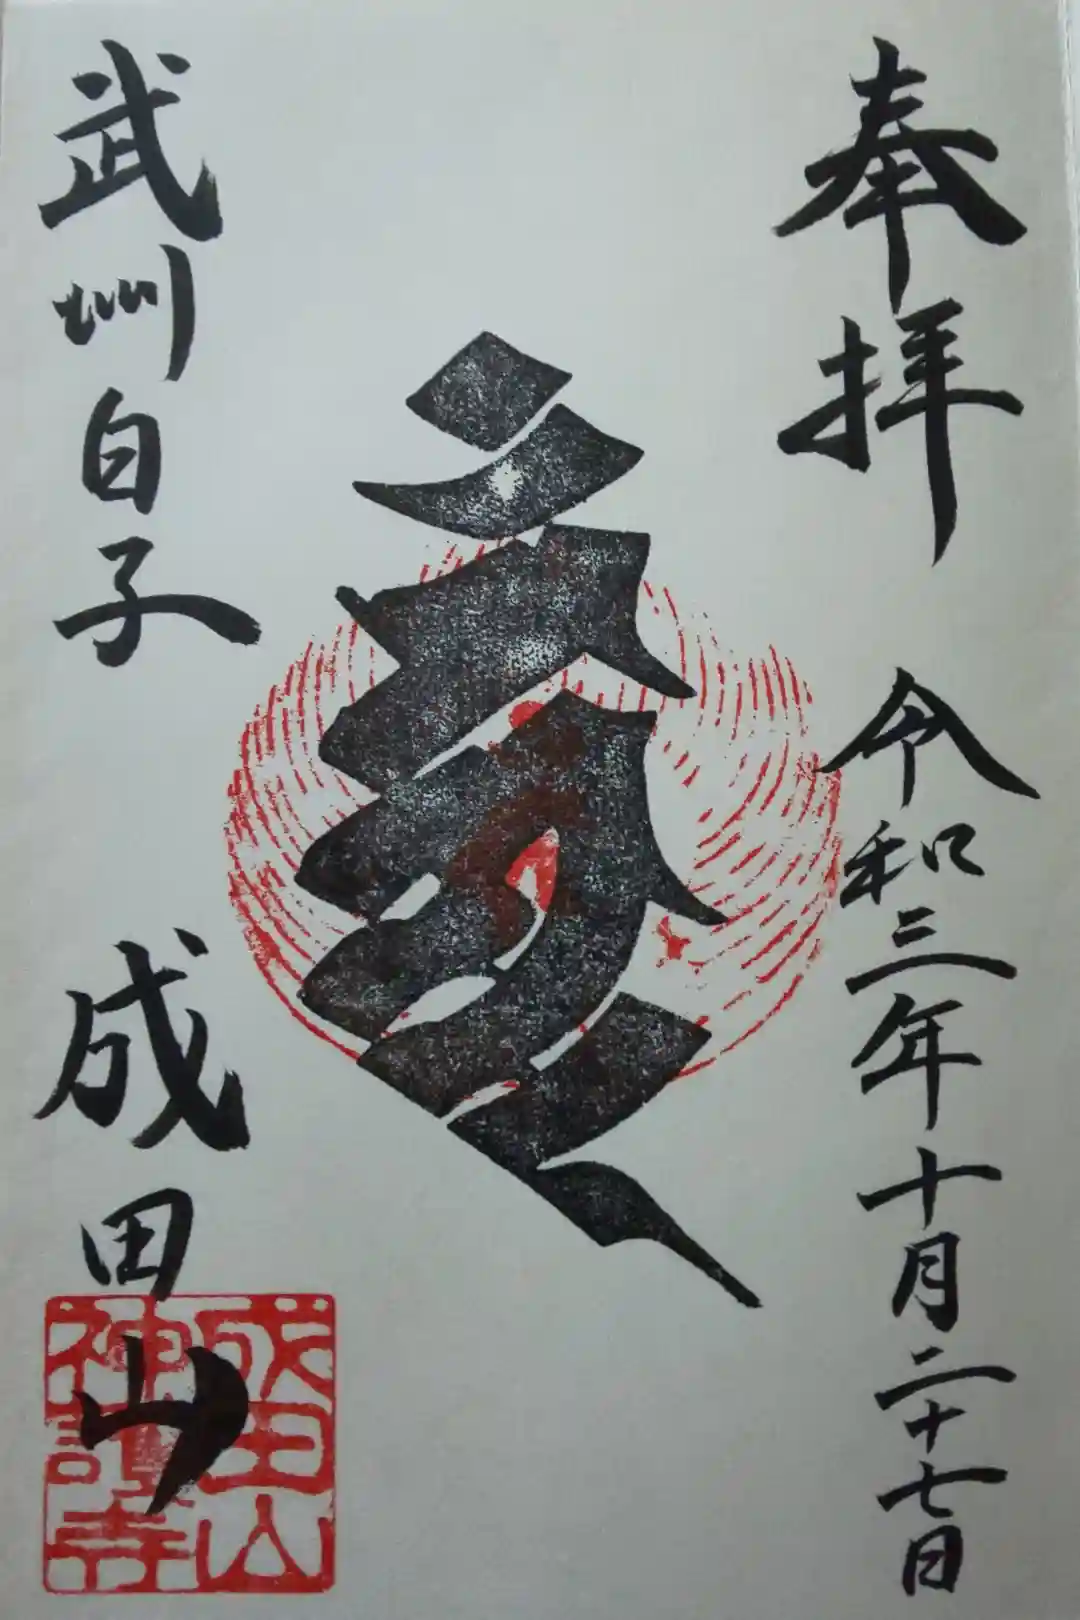 奉拝
令和三年十月二十七日
武州白子
成田山
成田山
神護寺